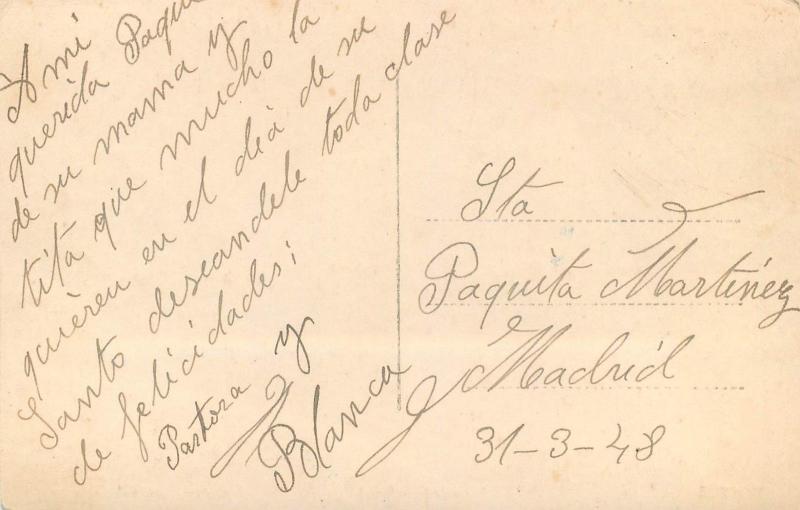 A mi
querida Paqui
de su mama y
tita que mucho la
quièren en el dià de su
Santo deseandole toda clase
de felicidades;
Pastora y
Blanca
Sta
Paquita Martinéz
Madrid
31-3-48